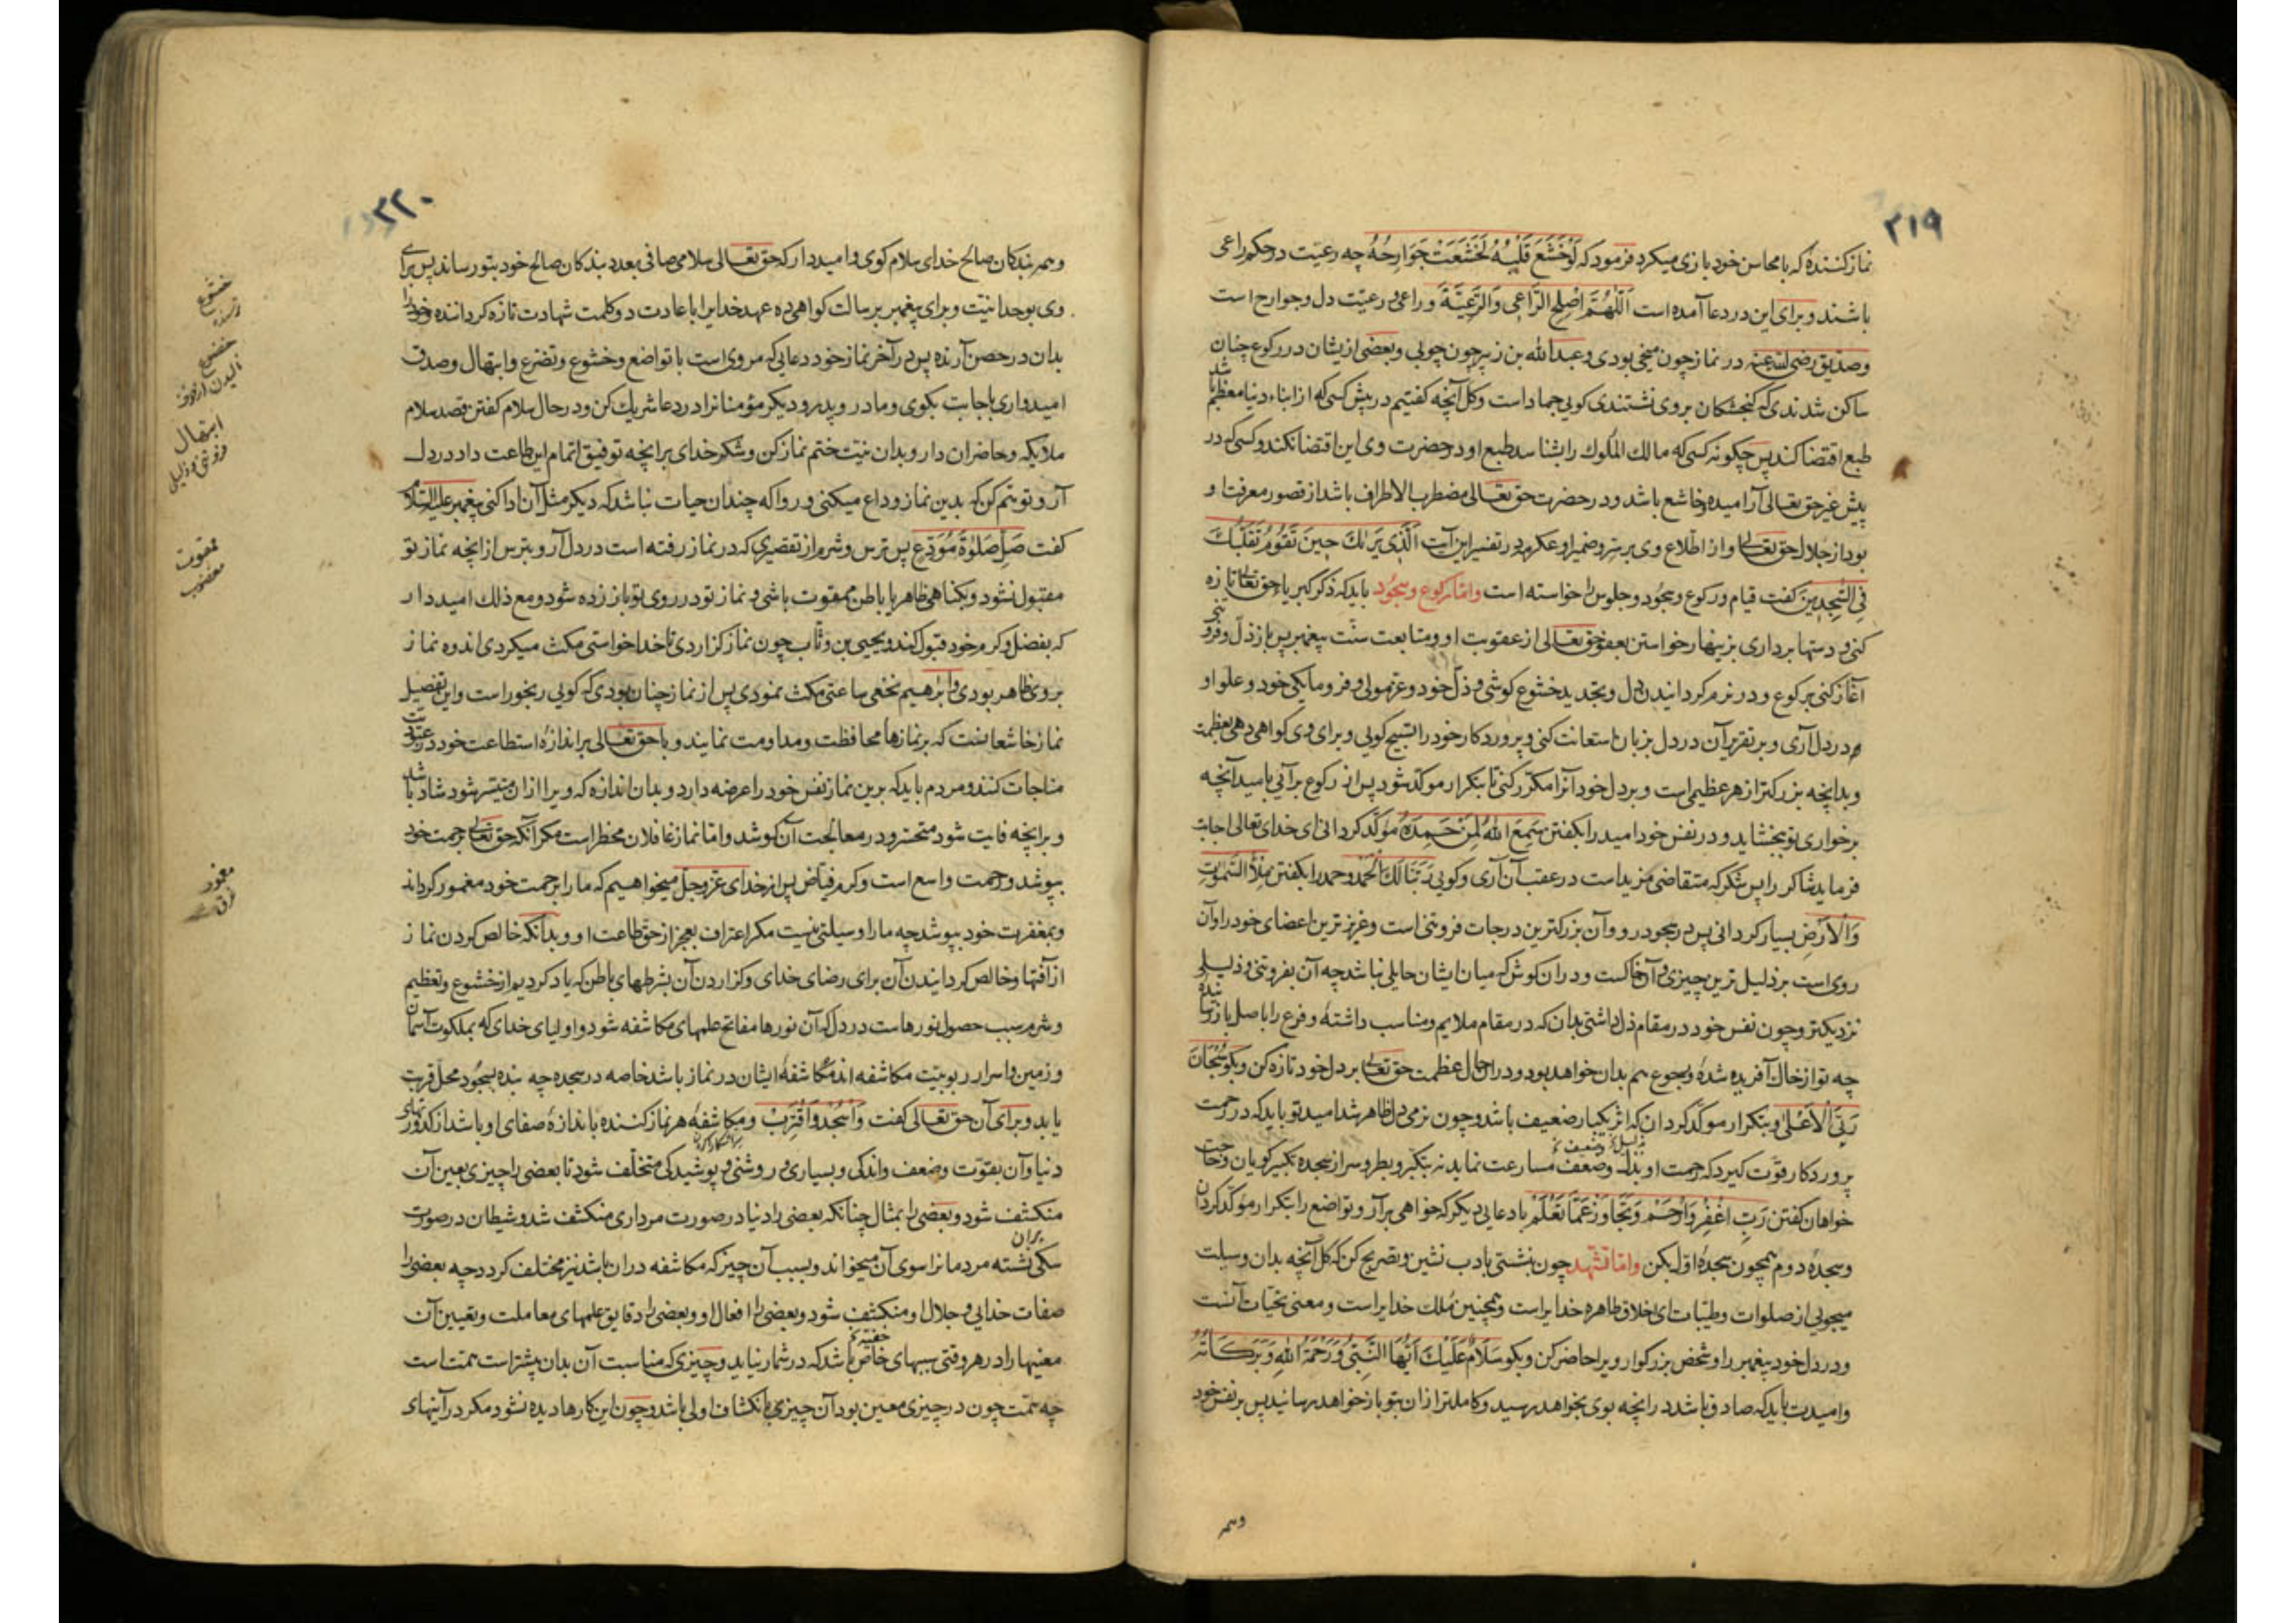 ۳۱۹
نماز کننده که با محاسن خود بازی میکرد فرمود که لَوْخَشَعَ قَلْبُهُ لَخَشَعَتْ جَوَارِحُهُ چه رعیت در حکم راعی
باشند و برای این در دعا آمده است اَللّٰهُمَّ اَصْلِحِ الرَّاعِی وَالرَّعِیَّةَ و راعی و رعیت دل و جوارح است
و صدیق رضی الله عنه در نماز چون میخی بودی و عبدالله بن زبیر چون چوبی و بعضی ازیشان در رکوع چنان
ساکن شدندی که کنجشکان بروی نشتندی کویی جماد است و کل آنچه کفتیم در پیش کسی که از ابناء دنیا معظم باشد
طبع اقتضا کند پس چکونه کسی که مالك الملوك را بشناسد طبع او در حضرت وی این اقتضا نکند و کسی که در
پیش غیر حق تعالی آرامیده و خاشع باشد و در حضرت حق تعالی مضطرب الاطراف باشد از قصور معرفت او
بود از جلال حق تعالی و از اطلاع وی بر سر و ضمیر او عکرمه در تفسیر این آیت اَلَّذی یَرٰیكَ حینَ تَقُومُ تَقَلُّبَكَ
فِی السّٰجِدینَ کفت قیام و رکوع و سجود و جلوس را خواسته است واما رکوع و سجود باید که ذکر کبریاء حق تعالی تازه
کنی و دستها برداری بزینهار خواستن بعفو حق تعالی از عقوبت او و متابعت سنت پیغمبر پس باز ذل و فروتنی
آغاز کنی برکوع و در نرم کردانیدن دل و تجدید خشوع کوشی و ذل خود و عز مولی و فرومایکی خود و علو او
در دل آری و بر تقریر آن در دل بزبان استعانت کنی و پروردکار خود را تسبیح کویی و برای وی کواهی دهی بعظمت
و بدانچه بزرکتر از هر عظیمی است و بر دل خود آنرا مکرر کنی تا بتکرار موکد شود پس از رکوع برآیی بامید آنچه
برخواری تو ببخشاید و در نفس خود امید را بکفتن سَمِعَ اللّٰهُ لِمَنْ حَمِدَهُ موکد کردانی ای خدای تعالی اجابت
فرماید شاکر را پس شکر که متقاضی مزید است در عقب آن آری و کویی رَبَّنَا لَكَ الْحَمْدُ و حمد را بکفتن مِلْأَ السَّمٰوٰتِ
وَالْاَرْضِ بسیار کردانی پس در سجود رو و آن بزرکترین درجات فروتنی است و عزیزترین اعضای خود را و آن
روی است بر ذلیل ترین چیزی و آن خاکست و دران کوش که میان ایشان حایلی نباشد چه آن بفروتنی و ذلیلی
نزدیکتر و چون نفس خود در مقام ذل داشتی بدان که در مقام ملایم و مناسب داشتهٔ و فرع را باصل باز رسانیدهٔ
چه تو از خاك آفریده شدهٔ و رجوع هم بدان خواهد بود و دران حال عظمت حق تعالی بر دل خود تازه کن و بکو سُبْحَانَ
رَبِّیَ الْاَعْلٰی و بتکرار موکد کردان که اثر یکبار ضعیف باشد و چون نرمی دل ظاهر شد امید تو باید که در رحمت
پروردکار قوت کیرد که رحمت او بذل و ضعف مسارعت نماید نه بتکبر و بطر و سر از سجده تکبیر کویان و حاجت
خواهان کفتن رَبِّ اغْفِرْ وَارْحَمْ وَتَجَاوَزْ عَمَّا تَعْلَمْ با دعایی دیکر که خواهی برآر و تواضع را بتکرار موکد کردان
و سجدهٔ دوم همچون سجدهٔ اول بکن واما تشهد چون بنشستی بادب نشین و تصریح کن که کل آنچه بدان وسیلت
میجویی از صلوات و طیبات ای اخلاق طاهره خدایراست و همچنین ملك خدایراست و معنی تحیات آنست
و در دل خود پیغمبر را و شخص بزرکوار ویرا حاضر کن و بکو سَلَامٌ عَلَیْكَ اَیُّهَا النَّبِیُّ وَرَحْمَةُ اللّٰهِ وَبَرَکَاتُهُ
و امیدت باید که صادق باشد درانچه بوی بخواهد رسید و کاملتر ازان بتو باز خواهد رسانید پس بر نفس خود
وهمه
۳۲۰
و همه بندکان صالح خدای سلام کوی و امید دار که حق تعالی سلامی صافی بعدد بندکان صالح خود بتو رساند پس برای
وی بوحدانیت و برای پیغمبر برسالت کواهی ده عهد خدایرا باعادت دو کلمت شهادت تازه کرداننده و خود را
بدان در حصن آرنده پس در آخر نماز خود دعایی که مروی است با تواضع و خشوع و تضرع و ابتهال و صدق
امیدواری باجابت بکوی و مادر و پدر و دیکر مؤمنانرا در دعا شریك کن و در حال سلام کفتن قصد سلام
ملایکه و حاضران دار و بدان نیت ختم نماز کن و شکر خدای برانچه توفیق اتمام این طاعت داد در دل
آر و توهم کن که بدین نماز وداع میکنی و روا که چندان حیات نباشد که دیکر مثل آن ادا کنی پیغمبر علیه السلام
کفت صَلِّ صَلٰوةَ مُوَدِّعٍ پس ترس و شرم از تقصیری که در نماز رفته است در دل آر و بترس از انچه نماز تو
مقبول نشود و بکناهی ظاهر یا باطن ممقوت باشی و نماز تو در روی تو باز زده شود و مع ذلك امید دار
که بفضل و کرم خود قبول کند و یحیی بن وثاب چون نماز کزاردی تا خدا خواستی مکث میکردی اندوه نماز
بروی ظاهر بودی و ابرهیم نخعی ساعتی مکث نمودی پس از نماز چنان بودی که کویی رنجور است و این تفصیل
نماز خاشعانست که بر نمازها محافظت و مداومت نمایند و با حق تعالی بر اندازهٔ استطاعت خود در عبودیت
مناجات کنند و مردم باید که برین نماز نفس خود را عرضه دارد و بدان اندازه که ویرا ازان میسر شود شاد باشد
و برانچه فایت شود متحسر و در معالجت آن کوشد واما نماز غافلان مخطر است مکر آنکه حق تعالی برحمت خود
بپوشد و رحمت واسع است و کرم فیاض پس از خدای عزوجل میخواهیم که ما را برحمت خود مغمور کرداند
و بمغفرت خود بپوشد چه ما را وسیلتی نیست مکر اعتراف بعجز از حق طاعت او و بدانکه خالص کردن نماز
از آفتها و خالص کردانیدن آن برای رضای خدای و کزاردن آن بشرطهای باطن که یاد کردیم از خشوع و تعظیم
و شرم سبب حصول نورهاست در دل که آن نورها مفاتح علمهای مکاشفه شود و اولیای خدای که بملکوت آسمان
و زمین و اسرار ربوبیت مکاشفه اند مکاشفهٔ ایشان در نماز باشد خاصه در سجده چه بنده بسجود محل قربت
یابد و برای آن حق تعالی کفت وَاسْجُدْ وَاقْتَرِبْ و مکاشفهٔ هر نماز کننده باندازهٔ صفای او باشد از کدورتهای
دنیا و آن بقوت و ضعف و اندکی و بسیاری و روشنی و پوشیدکی مختلف شود تا بعضی را چیزی بعین آن
منکشف شود و بعضی را بمثال چنانکه بعضی را دنیا در صورت مرداری منکشف شد و شیطان در صورت
سکی بران نشسته مردمانرا سوی آن میخواند و بسبب آن چیز که مکاشفه دران باشد نیز مختلف کردد چه بعضی را
صفات خدایی و جلال او منکشف شود و بعضی را افعال او و بعضی را دقایق علمهای معاملت و تعیین آن
معنیها را در هر وقتی سببهای خفیه خاص باشد که در شمار نیاید و چیزی که مناسبت آن بدان بیشتر است همت است
چه همت چون در چیزی معین بود آن چیزی بانکشاف اولی باشد و چون این کارها دیده نشود مکر در آینهای
خشوع
خضوع
ابتهال
ممقوت
مغضوب